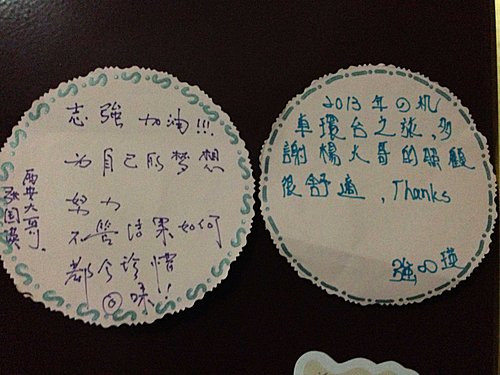 志強 加油!!!
为自己的梦想
努力
不管结果如何
都今珍惜
回味!
西安大哥
2013年の机
車環台之旅,多
謝楊大哥的照顧
很舒適,Thanks
強